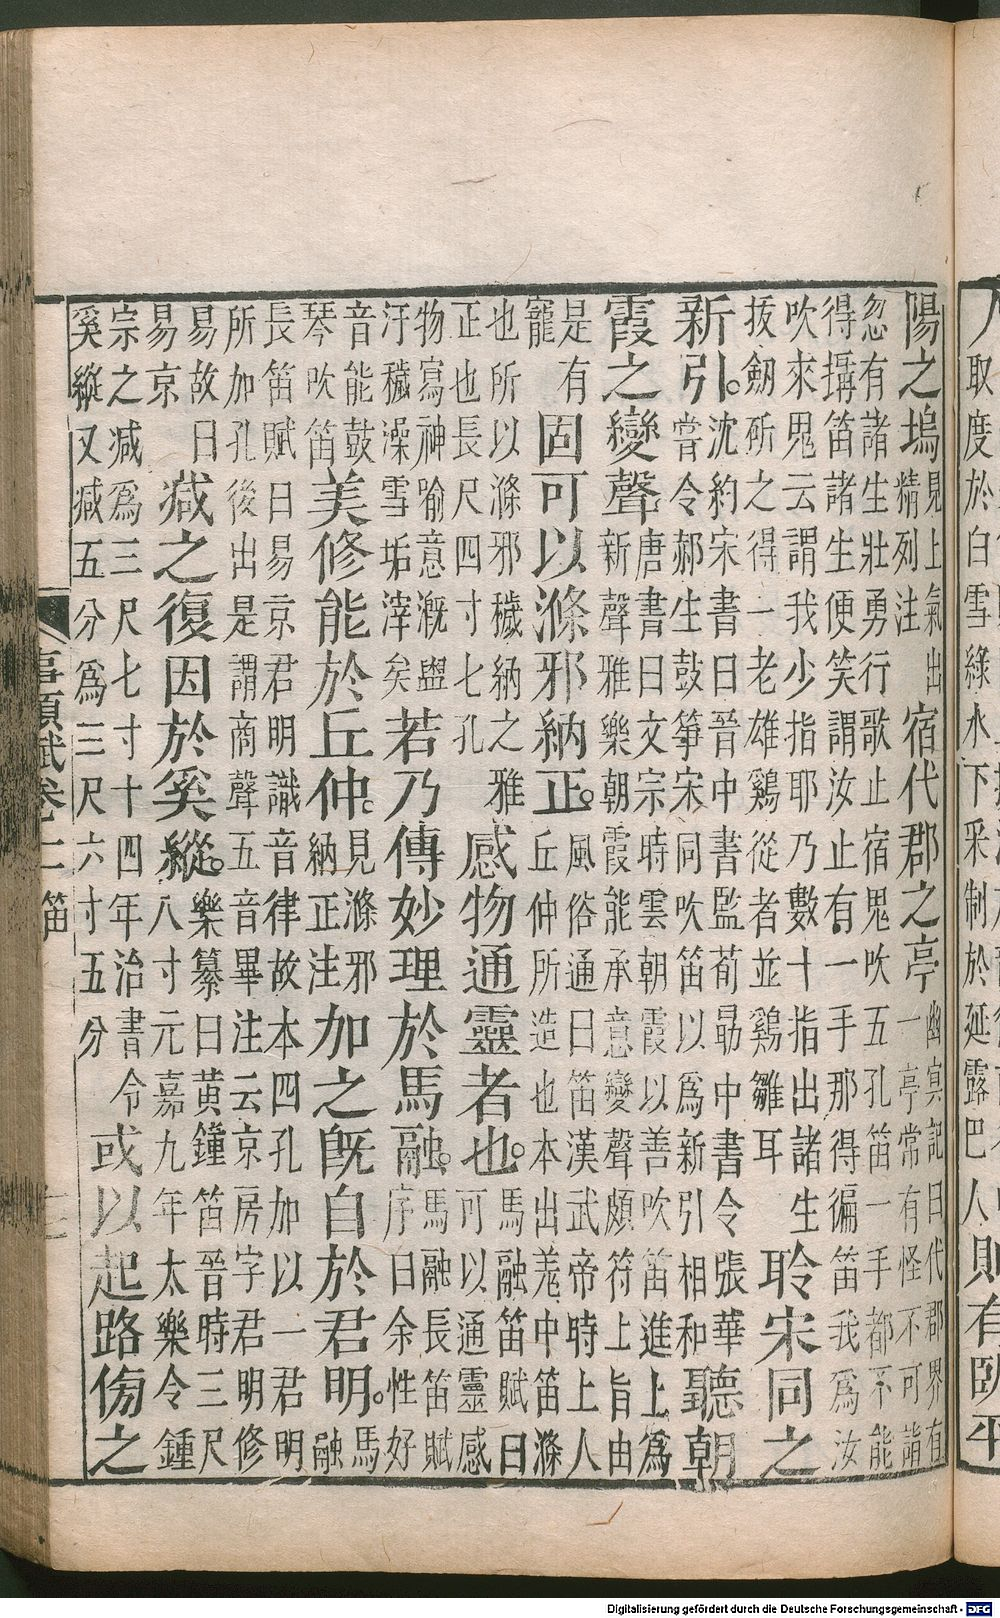 取度於白雪綠水
下采制於延露巴人
則有臥平
陽之塢
見上氣出
精列注
宿代郡之亭
幽冥記曰代郡界有
一亭常有怪不可詣
忽有諸生壯勇行歌止宿鬼吹五孔笛一手都不能
得搆笛諸生便笑謂汝止有一手那得徧笛我爲汝
吹來鬼云謂我少指耶乃數十指出諸生
拔劒斫之得一老雄鷄從者並鷄雛耳
聆宋同之
新引。
沈約宋書曰晉中書監荀勗中書令張華
嘗令郝生鼓箏宋同吹笛以爲新引相和
聽朝
霞之變聲
唐書曰文宗時雲朝霞以善吹笛進上爲
新聲雅樂朝霞能承意變聲頗符上旨由
是有
寵
固可以滌邪納正。
風俗通曰笛漢武帝時上人
丘仲所造也本出羌中笛滌
也所以滌邪穢納之雅
正也長尺四寸七孔
感物通靈者也。
馬融笛賦曰
可以通靈感
物寫神喻意漑盥
汙穢澡雪垢滓矣
若乃傳妙理於馬融。
馬融長笛賦
序曰余性好
音能鼓
琴吹笛
美修能於丘仲。
見滌邪
納正注
加之旣自於君明。
馬
融
長笛賦曰易京君明識音律故本四孔加以一君明
所加孔後出是謂商聲五音畢注云京房字君明修
易故曰
易京
減之復因於奚縱。
樂纂曰黃鐘笛晉時三尺
八寸元嘉九年太樂令鍾
宗之減爲三尺七寸十四年治書令
奚縱又減五分爲三尺六寸五分
或以起路傍之
事類賦卷十一 笛
Digitalisierung gefördert durch die Deutsche Forschungsgemeinschaft - DFG